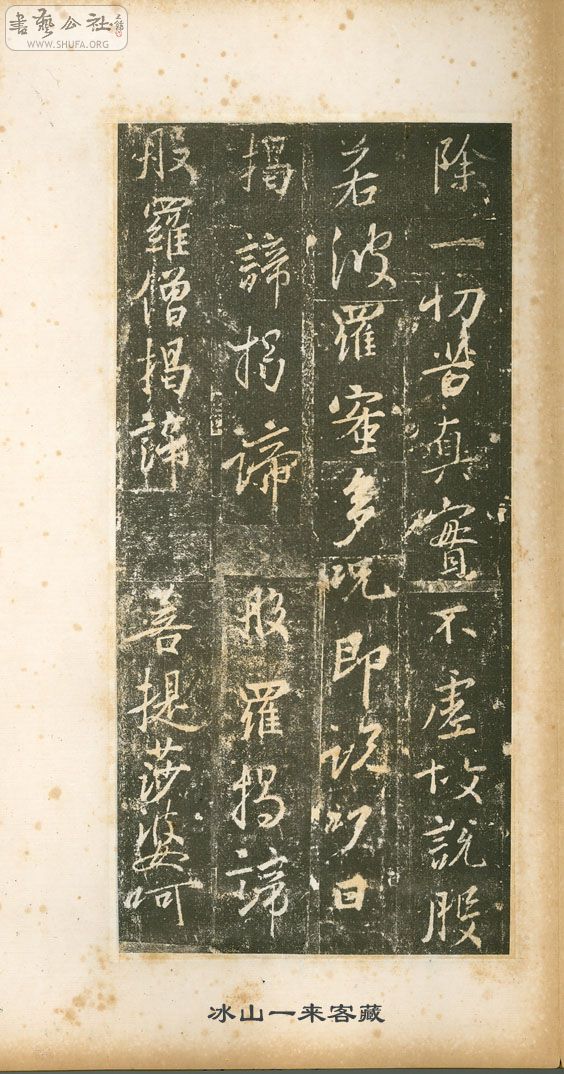 書藝公社
WWW.SHUFA.ORG
除一切苦真實不虛故說般
若波羅蜜多呪即說呪曰
揭諦揭諦 般羅揭諦
般羅僧揭諦 菩提莎婆呵
冰山一来客藏